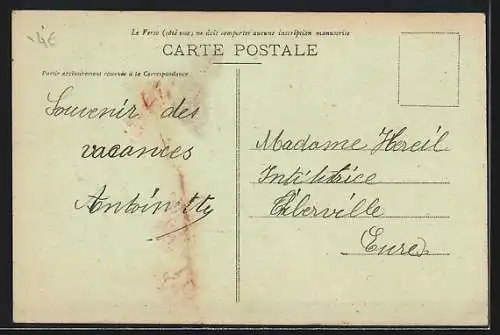 4€
Le Verso (côté vue) ne doit comporter aucune inscription manuscrite
CARTE POSTALE
Partie exclusivement réservée à la Correspondance
Souvenir des
vacances
Antoinette
Madame
Intitutrice
Thiberville
Eure